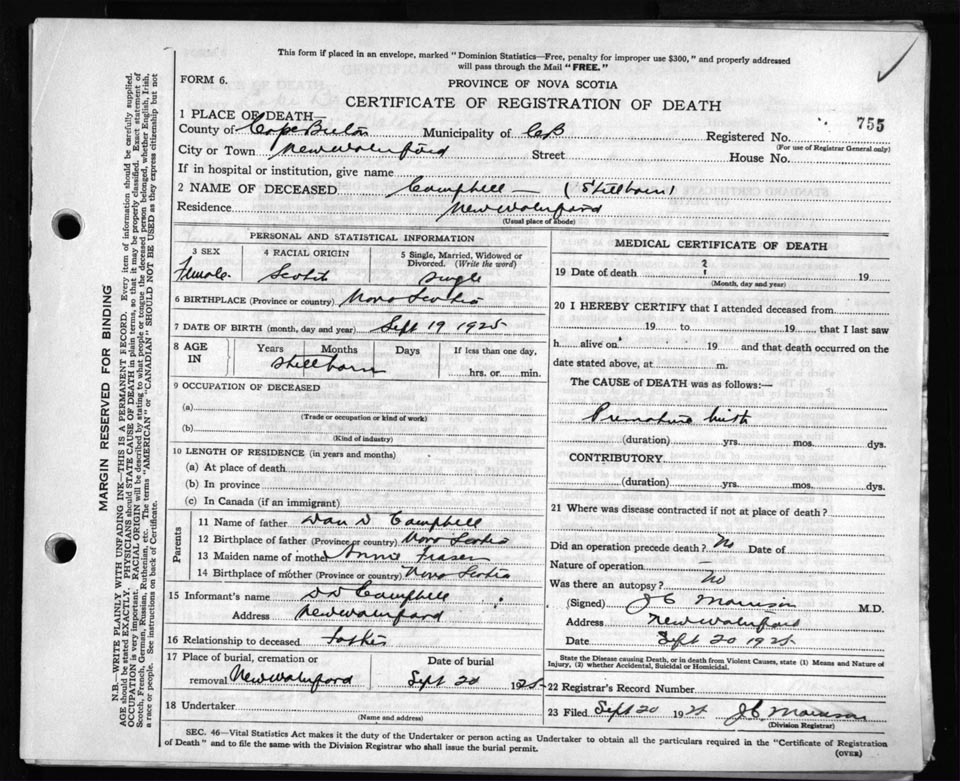 This form if placed in an envelope, marked "Dominion Statistics—Free, penalty for improper use $300," and properly addressed
will pass through the Mail "FREE."
FORM 6.
PROVINCE OF NOVA SCOTIA
CERTIFICATE OF REGISTRATION OF DEATH
1 PLACE OF DEATH—
County of Cape Breton Municipality of CB Registered No. 755
(For use of Registrar General only)
City or Town New Waterford Street House No.
If in hospital or institution, give name
2 NAME OF DECEASED Campbell — (Stillborn)
Residence New Waterford
(Usual place of abode)
PERSONAL AND STATISTICAL INFORMATION
3 SEX 4 RACIAL ORIGIN 5 Single, Married, Widowed or
Divorced. (Write the word)
Female Scotch Single
6 BIRTHPLACE (Province or country) Nova Scotia
7 DATE OF BIRTH (month, day and year) Sept 19 1925
8 AGE IN Years Months Days If less than one day,
Stillborn hrs. or min.
9 OCCUPATION OF DECEASED
(a)
(Trade or occupation or kind of work)
(b)
(Kind of industry)
10 LENGTH OF RESIDENCE (in years and months)
(a) At place of death
(b) In province
(c) In Canada (if an immigrant)
Parents
11 Name of father Dan D Campbell
12 Birthplace of father (Province or country) Nova Scotia
13 Maiden name of mother Annie Fraser
14 Birthplace of mother (Province or country) Nova Scotia
15 Informant's name D D Campbell
Address New Waterford
16 Relationship to deceased Father
17 Place of burial, cremation or Date of burial
removal New Waterford Sept 20 1925
18 Undertaker
(Name and address)
MEDICAL CERTIFICATE OF DEATH
19 Date of death ? 19
(Month, day and year)
20 I HEREBY CERTIFY that I attended deceased from
19 to 19 that I last saw
h alive on 19 and that death occurred on the
date stated above, at m.
The CAUSE of DEATH was as follows:—
Premature birth
(duration) yrs. mos. dys.
CONTRIBUTORY
(duration) yrs. mos. dys.
21 Where was disease contracted if not at place of death?
Did an operation precede death? No Date of
Nature of operation —
Was there an autopsy? No
(Signed) J C Morrison M.D.
Address New Waterford
Date Sept 20 1925
State the Disease causing Death, or in death from Violent Causes, state (1) Means and Nature of
Injury, (2) whether Accidental, Suicidal or Homicidal.
22 Registrar's Record Number
23 Filed Sept 20 1925 J C Morrison
(Division Registrar)
SEC. 46—Vital Statistics Act makes it the duty of the Undertaker or person acting as Undertaker to obtain all the particulars required in the "Certificate of Registration
of Death" and to file the same with the Division Registrar who shall issue the burial permit.
(OVER)
MARGIN RESERVED FOR BINDING
N.B.—WRITE PLAINLY WITH UNFADING INK—THIS IS A PERMANENT RECORD. Every item of information should be carefully supplied.
AGE should be stated EXACTLY. PHYSICIANS should STATE CAUSE OF DEATH in plain terms, so that it may be properly classified. Exact statement of
OCCUPATION is very important. RACIAL ORIGIN will be described by stating to what people or tongue the deceased person belonged, whether English, Irish,
Scotch, French, German, Russian, Ruthenian, etc. The terms "AMERICAN" or "CANADIAN" SHOULD NOT BE USED as they express citizenship but not
a race or people. See instructions on back of Certificate.